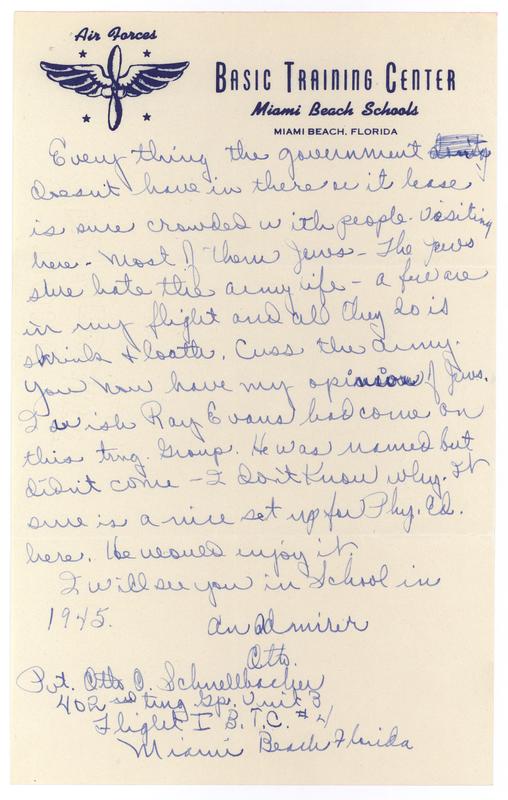 Air Forces
BASIC TRAINING CENTER
Miami Beach Schools
MIAMI BEACH, FLORIDA
Every thing the government
doesn't have in there or it lease
is sure crowded with people. Visiting
here - most of them Jews - The Jews
sure hate the army life - a few are
in my flight and all they do is
shrink & loath. Cuss the army.
You now have my opinion of Jews.
I wish Ray Evans had come on
this tng. Group. He was named but
didn't come - I don't Know why. It
sure is a nice set up for Phy. Ed.
here. He would enjoy it.
I will see you in School in
1945.
An Admirer
Otto.
Pvt. Otto O. Schnellbacher
402 ting Gp. Unit 3
Flight I B.T.C. #4
Miami Beach Florida